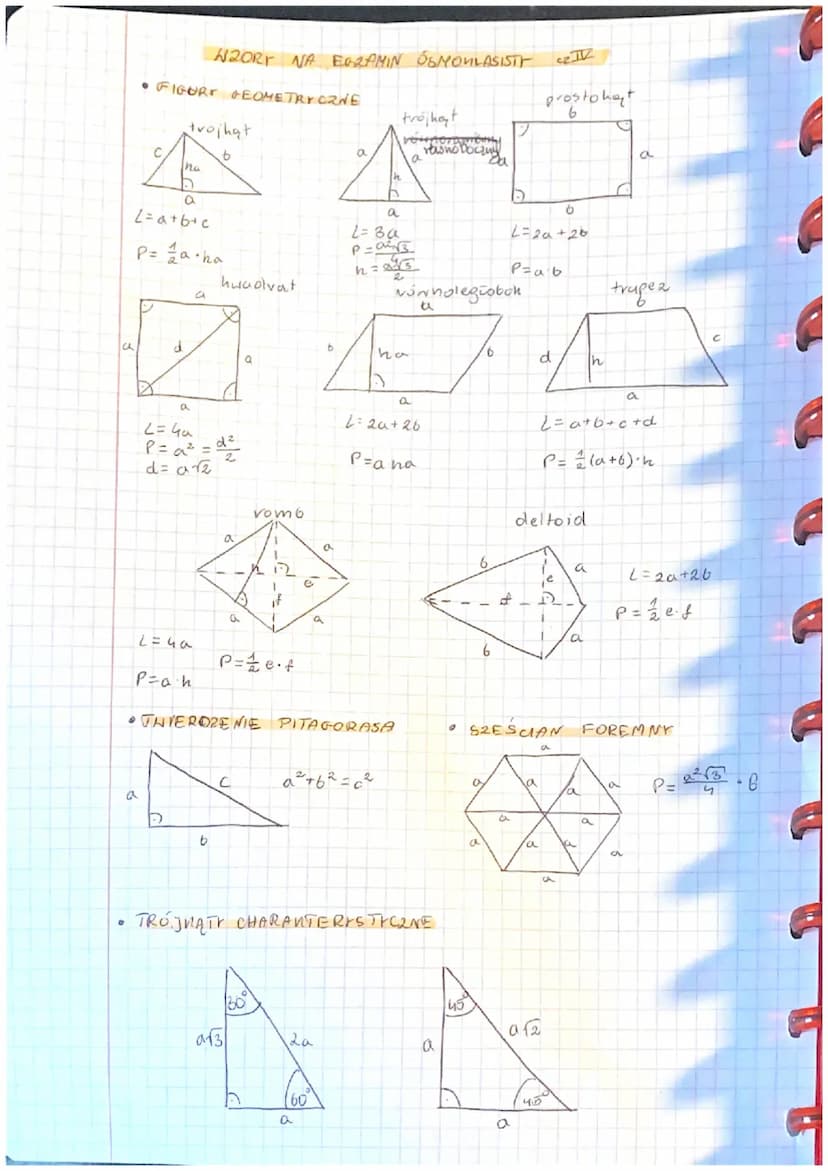 WZORY NA EGZAMIN ÓSMOKLASISTY cz IV
• FIGURY GEOMETRYCZNE
trójkąt
c
b
ha
a
L=a+b+c
P= 1/2 a·ha
trójkąt
równoboczny
a
a
h
a
L=3a
P=a²√3/4
h=a√3/2
prostokąt
b
a
a
b
L=2a+2b
P=a·b
kwadrat
a
a
d
a
a
L=4a
P=a²=d²/2
d=a√2
równoległobok
a
b
ha
b
a
L=2a+2b
P=a ha
trapez
b
d
h
c
a
L=a+b+c+d
P= 1/2 (a+b)·h
romb
a
a
h
e
f
a
a
L=4a
P=a·h
P=1/2 e·f
deltoid
b
a
e
f
b
a
L=2a+2b
P=1/2 e·f
• TWIERDZENIE PITAGORASA
a
c
b
a²+b²=c²
• SZEŚCIAN FOREMNY
a
a
a
a
a
a
a
a
a
a
a
a
P= a²√3/4 · 6
• TRÓJKĄTY CHARAKTERYSTYCZNE
30°
a√3
2a
60°
a
45°
a
a√2
45°
a